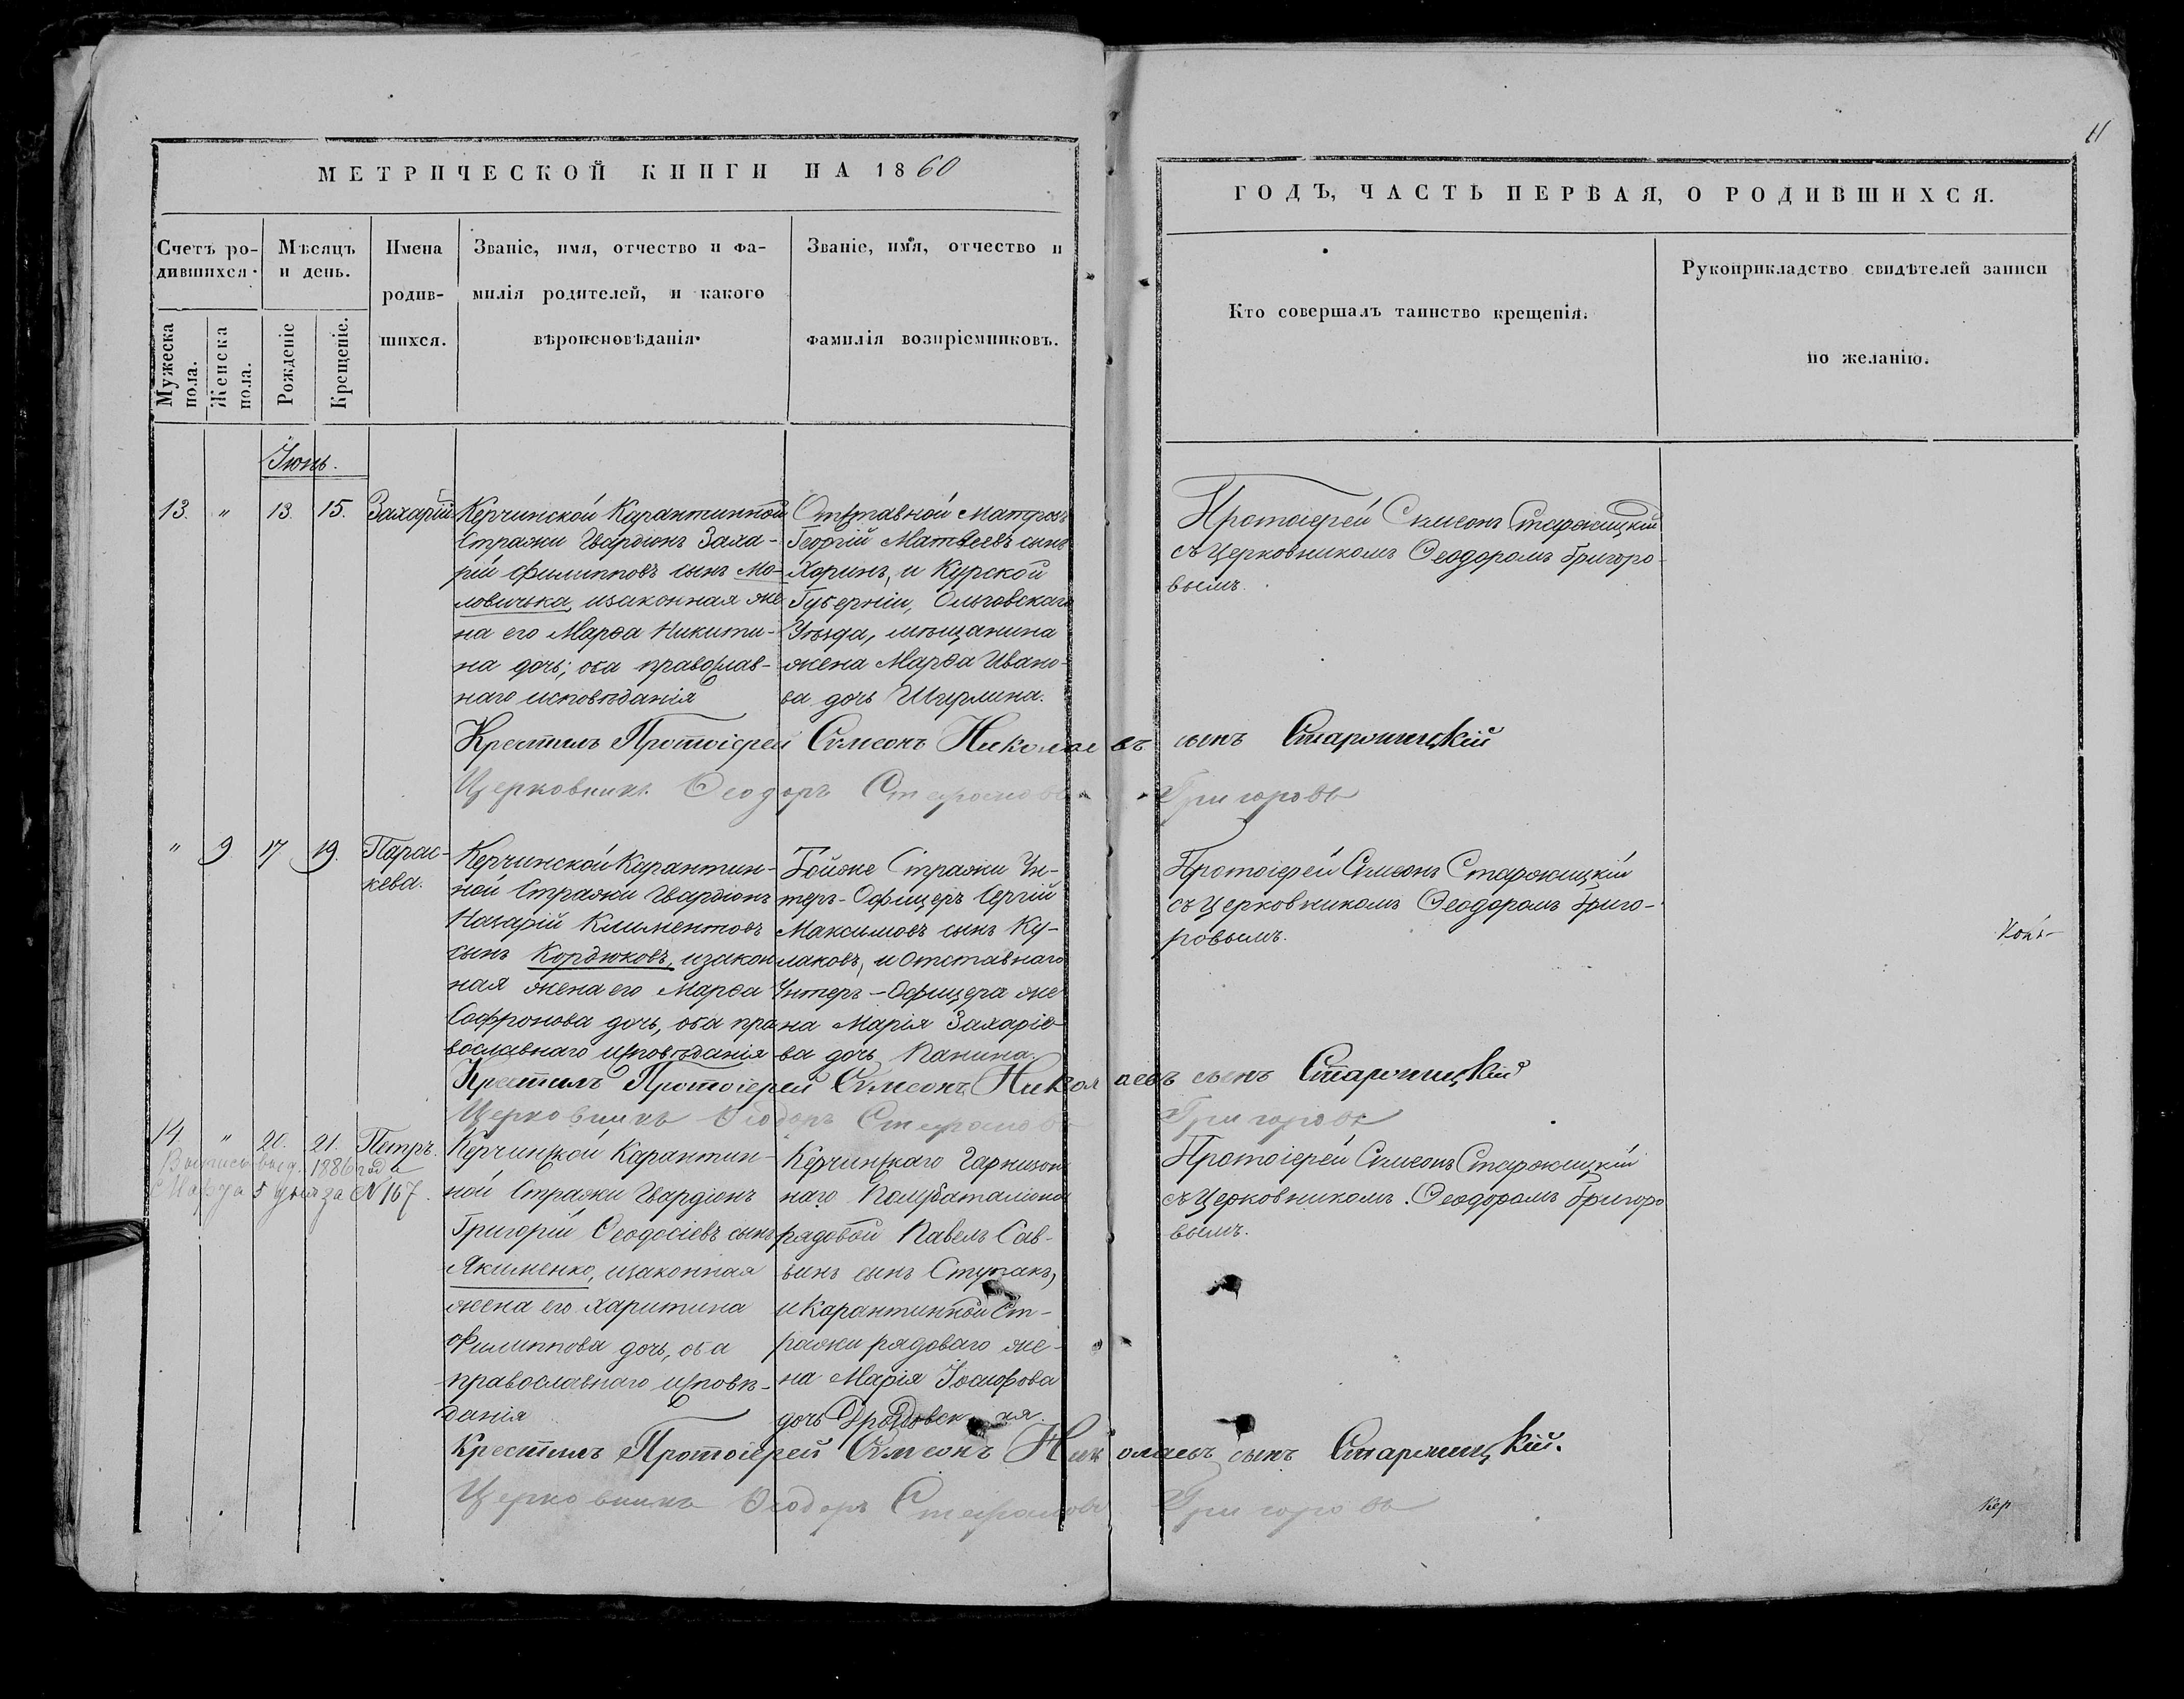 11
МЕТРИЧЕСКОЙ КНИГИ НА 1860
ГОДЪ, ЧАСТЬ ПЕРВАЯ, О РОДИВШИХСЯ.
Счетъ ро-
дившихся.
Мужеска пола.
Женска пола.
Мѣсяцъ
и день.
Рожденіе
Крещеніе.
Имена
родив-
шихся.
Званіе, имя, отчество и фа-
милія родителей, и какого
вѣроисповѣданія.
Званіе, имя, отчество и
фамилія воспріемниковъ.
Кто совершалъ таинство крещенія.
Рукоприкладство свидѣтелей записи
по желанію.
Іюнь.
13. " 13. 15. Захарій
Керчинской Карантинной
Стражи Гвардіонъ Заха-
рій Филипповъ сынъ Мо-
ловичка, изаконная же-
на его Марѳа Никити-
на дочь; оба православ-
наго исповѣданія
Отставной Матросъ
Георгій Матвеевъ сынъ
Харинъ, и Курской
Губерніи, Ольговскаго
Уѣзда, мѣщанина
жена Марѳа Ивано-
ва дочь
Протоіерей Симеонъ Старожицкій
съ Церковникомъ Ѳеодоромъ Григоро-
вымъ.
Крестилъ Протоіерей Симеонъ Николаевъ сынъ Старожицкій
Церковникъ Ѳеодоръ Стефановъ Григоровъ
" 9 17 19. Парас-
кева.
Керчинской Карантин-
ной Стражи Гвардіонъ
Назарій Климентовъ
сынъ Кордюковъ, изакон
ная жена его Марѳа
Софронова дочь, оба пра
вославнаго исповѣданія
Тойже Стражи Ун-
теръ-Офицеръ Сергій
Максимовъ сынъ Ку-
лаковъ, и Отставнаго
Унтеръ-Офицера же
на Марія Захаріе-
ва дочь Панина.
Протоіерей Симеонъ Старожицкій
съ Церковникомъ Ѳеодоромъ Григо-
ровымъ.
Крестилъ Протоіерей Симеонъ Николаевъ сынъ Старожицкій
Церковникъ Ѳеодоръ Стефановъ Григоровъ
14. " 20. 21. Петръ.
Выпись выд. 1886 года
Марта 5 дня за № 167.
Керчинской Карантин-
ной Стражи Гвардіонъ
Григорій Ѳеодосіевъ сынъ
Якименко, изаконная
жена его Харитина
Филиппова дочь, оба
православнаго исповѣ-
данія
Керчинскаго Гарнизон
наго Полубаталіона
рядовой Павелъ Сав-
винъ сынъ Ступакъ,
и Карантинной Ст-
ражи рядоваго же-
на Марія Іосифова
дочь Дроздовская.
Протоіерей Симеонъ Старожицкій
съ Церковникомъ Ѳеодоромъ Григоро
вымъ.
Крестилъ Протоіерей Симеонъ Николаевъ сынъ Старожицкій.
Церковникъ Ѳеодоръ Стефановъ Григоровъ
Кер